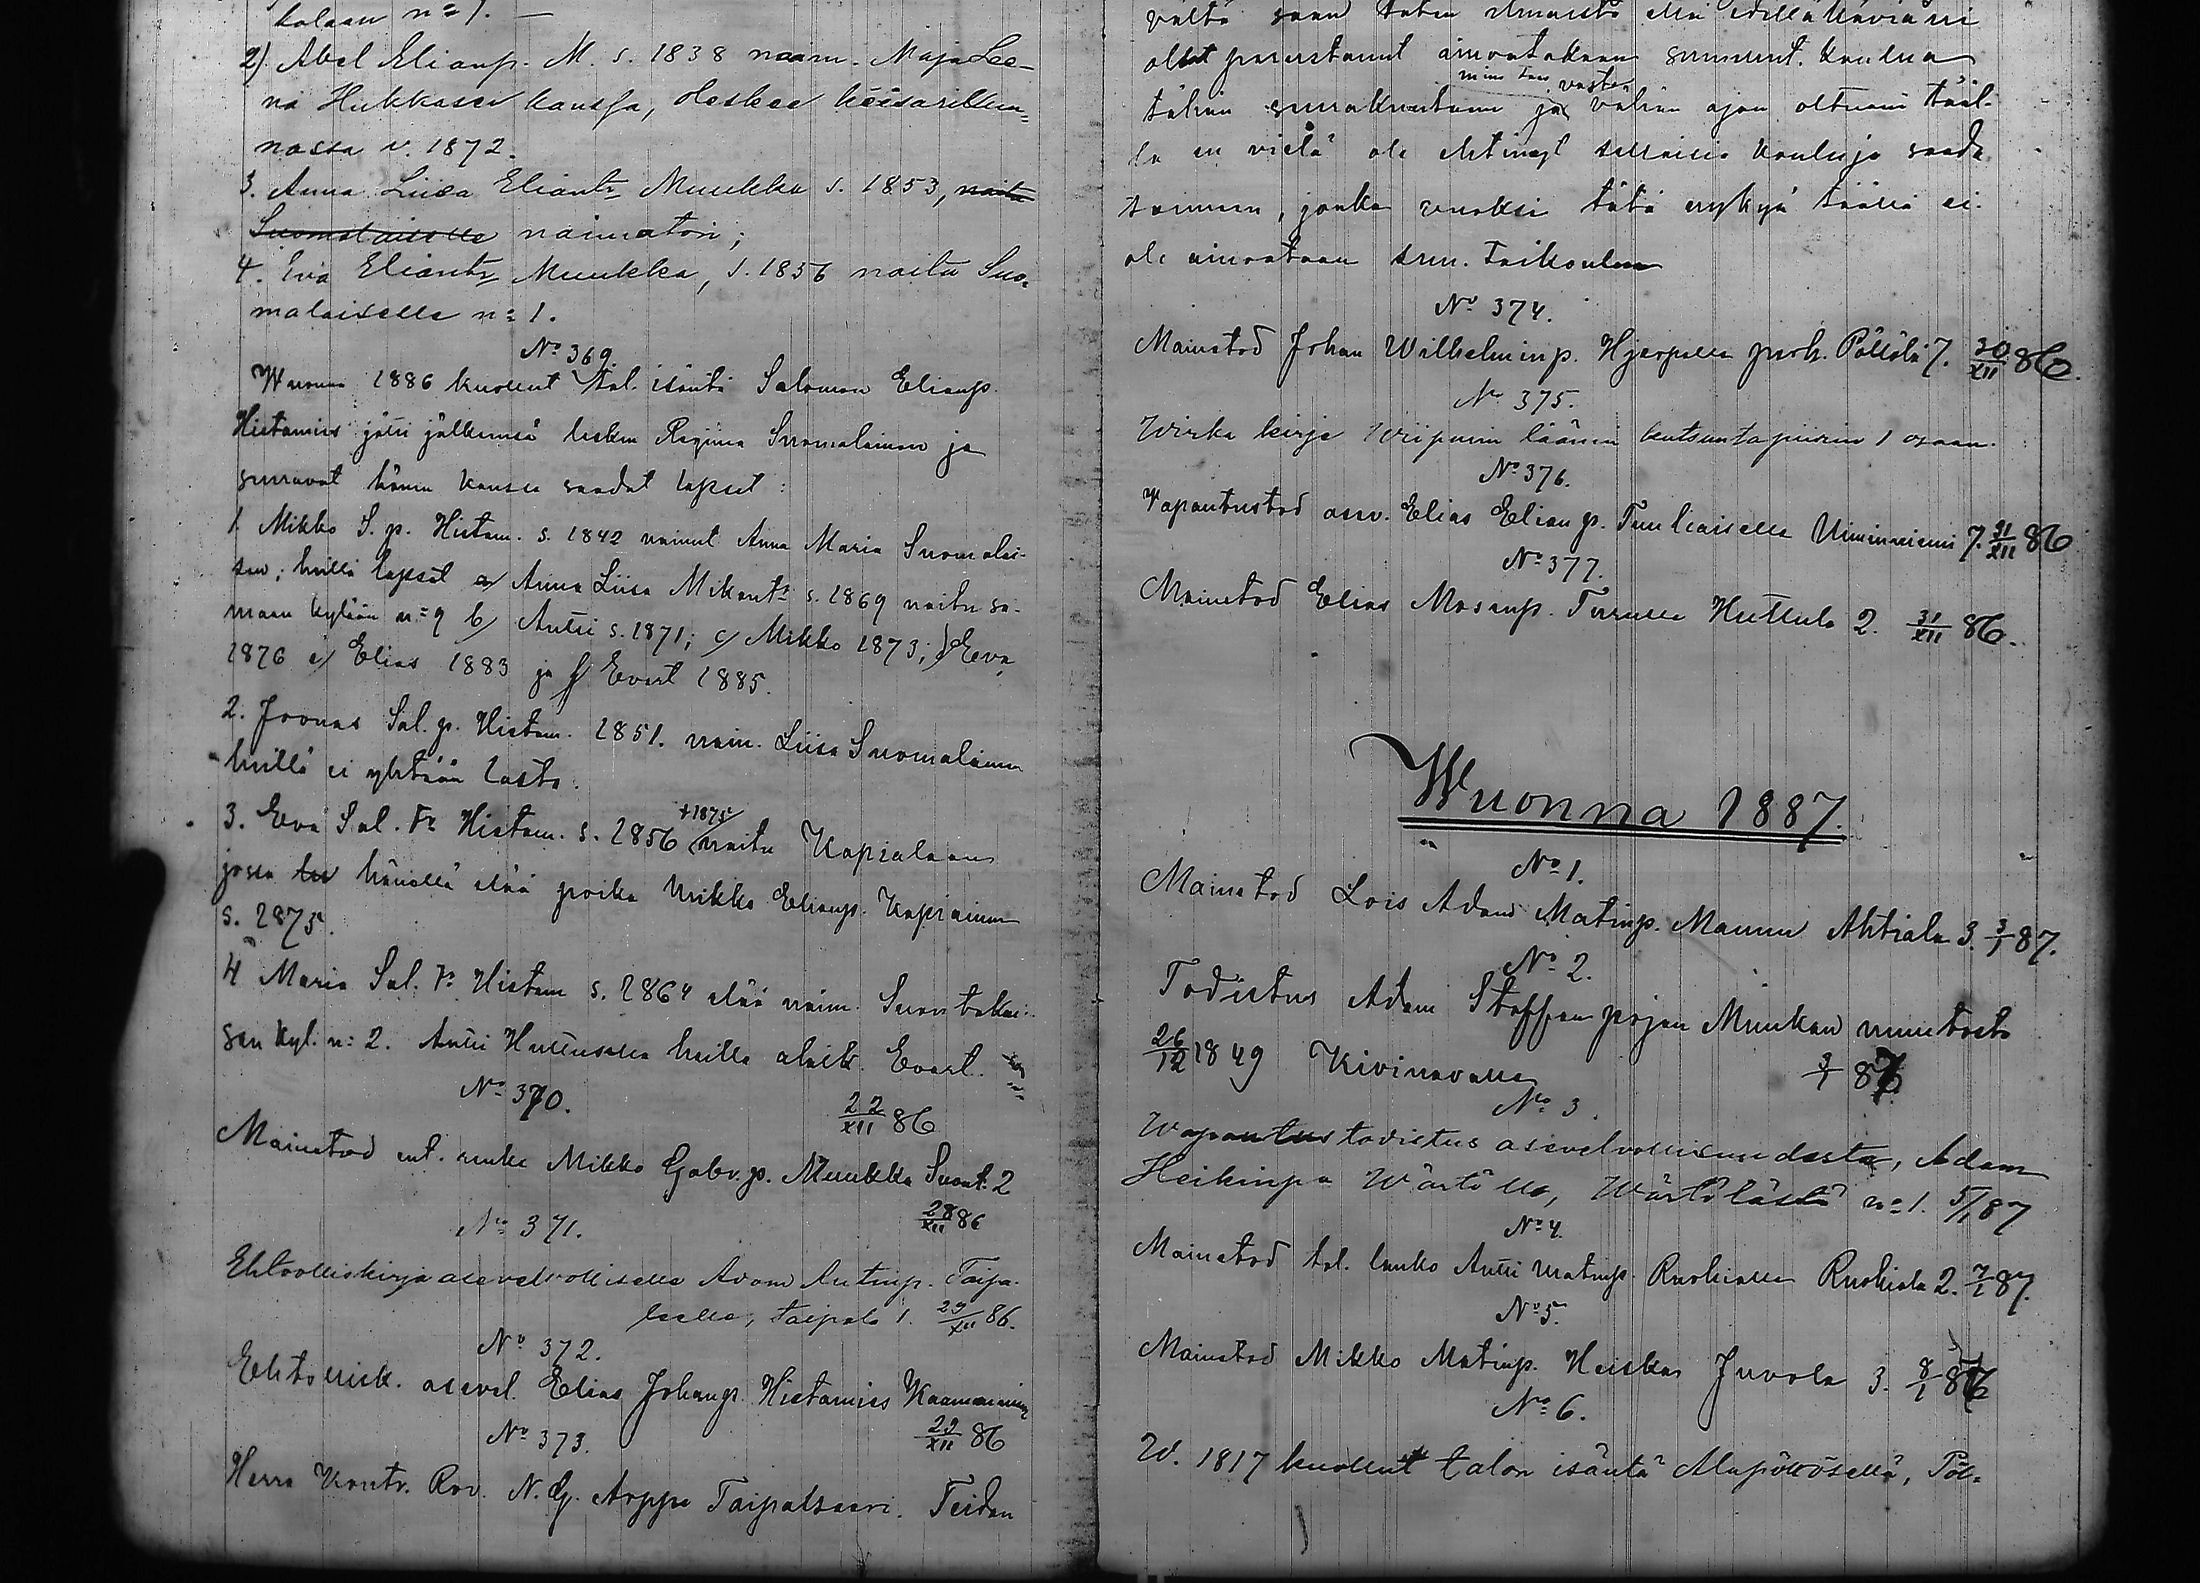 kolaan n:=1. —
2) Abel Elianp. M. s. 1838 naim. Maja Lee-
na Hukkasen kanssa, oleskee keisarikun=
nassa v. 1872.
3. Anna Liisa Eliant: Muukka s. 1853, naitu
Suomalaiselle naimaton;
4. Eva Eliantr Muukka, s. 1856 naitu Suo-
malaiselle n:=1.
No 369.
Wuonna 1886 kuollut tal. isäntä Salomon Elianp.
Hietamies jätti jälkeensä lesken Regiina Suomalainen ja
seuraavat hänen kanssa saadut lapset:
1. Mikko S. p. Hietam. s. 1842 nainut Anna Maria Suomalai-
sen; heillä lapset a/ Anna Liisa Mikont: s. 1869 naitu sa-
maan kylään n:=9 b/ Antti s. 1871; c/ Mikko 1873; d/ Eeva
1876 e/ Elias 1883 ja f/ Evert 1885.
2. Joonas Sal. p. Hietam. 1851. naim. Liisa Suomalainen
heillä ei yhtään lasta.
3. Eva Sal. tr. Hietam. s. 1856 +1875 naitu Kapialaan
jossa hänellä elää poika Mikko Elianp. Kapiainen
s. 1875.
4 Maria Sal. tr. Hietam s. 1864 elää naim. Suontakai-
sen kyl. n:= 2. Antti Huttuselle heillä alaik. Evert.
No 370.
22/XII 86
Mainetod ent. renki Mikko Gabr. p. Muukka Suont. 2
No 371.
28/XII 86
Ehtoolliskirja asevelvolliselle Adam Antinp. Taipa-
leelle, Taipale 1. 29/XII 86.
No 372.
Ehtoollisk. asevel. Elias Johanp. Hietamies Kaamaniemi
No 373.
29/XII 86
Herra Kontr. Rov. N. G. Arppe Taipalsaari. Teidän
saan täten ilmoittaa että edelläkäviäni
ollut perustanut ainoatakaan koulua
tähän seurakuntaan ja minä taas vasta vähän ajan oltuani tääl-
lä en vielä ole ehtinyt sellaisia kouluja saada
toimeen, jonka vuoksi tätä nykyä täällä ei
ole ainoataan seur.
No 374.
Mainetod Johan Wilhelminp. Hjerpelle Pöllölä 7. 30/XII 86.
No 375.
Wirka kirje Wiipurin läänin kutsuntapiirin 1 osaan.
No 376.
Vapautustod asev. Elias Elian p. Tuuliaiselle Uiminniemi 7. 31/XII 86
No 377.
Mainetod Elias Mosesp. Turulle Huttula 2. 31/XII 86.
Wuonna 1887.
No 1.
Mainetod Lois Adam Matinp. Mannu Ahtiala 3. 3/1 87.
No 2.
Todistus Adam Staffan pojan Muukan muutosta
26/12 1849 Kivinavalle 3/1 87
No 3.
Wapautustodistus asevelvollisuudesta, Adam
Heikinpa Wärtölle, Wärtölästä n:=1. 5/1 87
No 4.
Mainetod tal. lanko Antti Matinp. Ruohialle Ruohiala 2. 7/1 87.
No 5.
Mainetod Mikko Matinp. Heiskas Juvola 3. 8/1 87
No 6.
W. 1817 kuollut talon isäntä Alapöllösellä, Pöl=